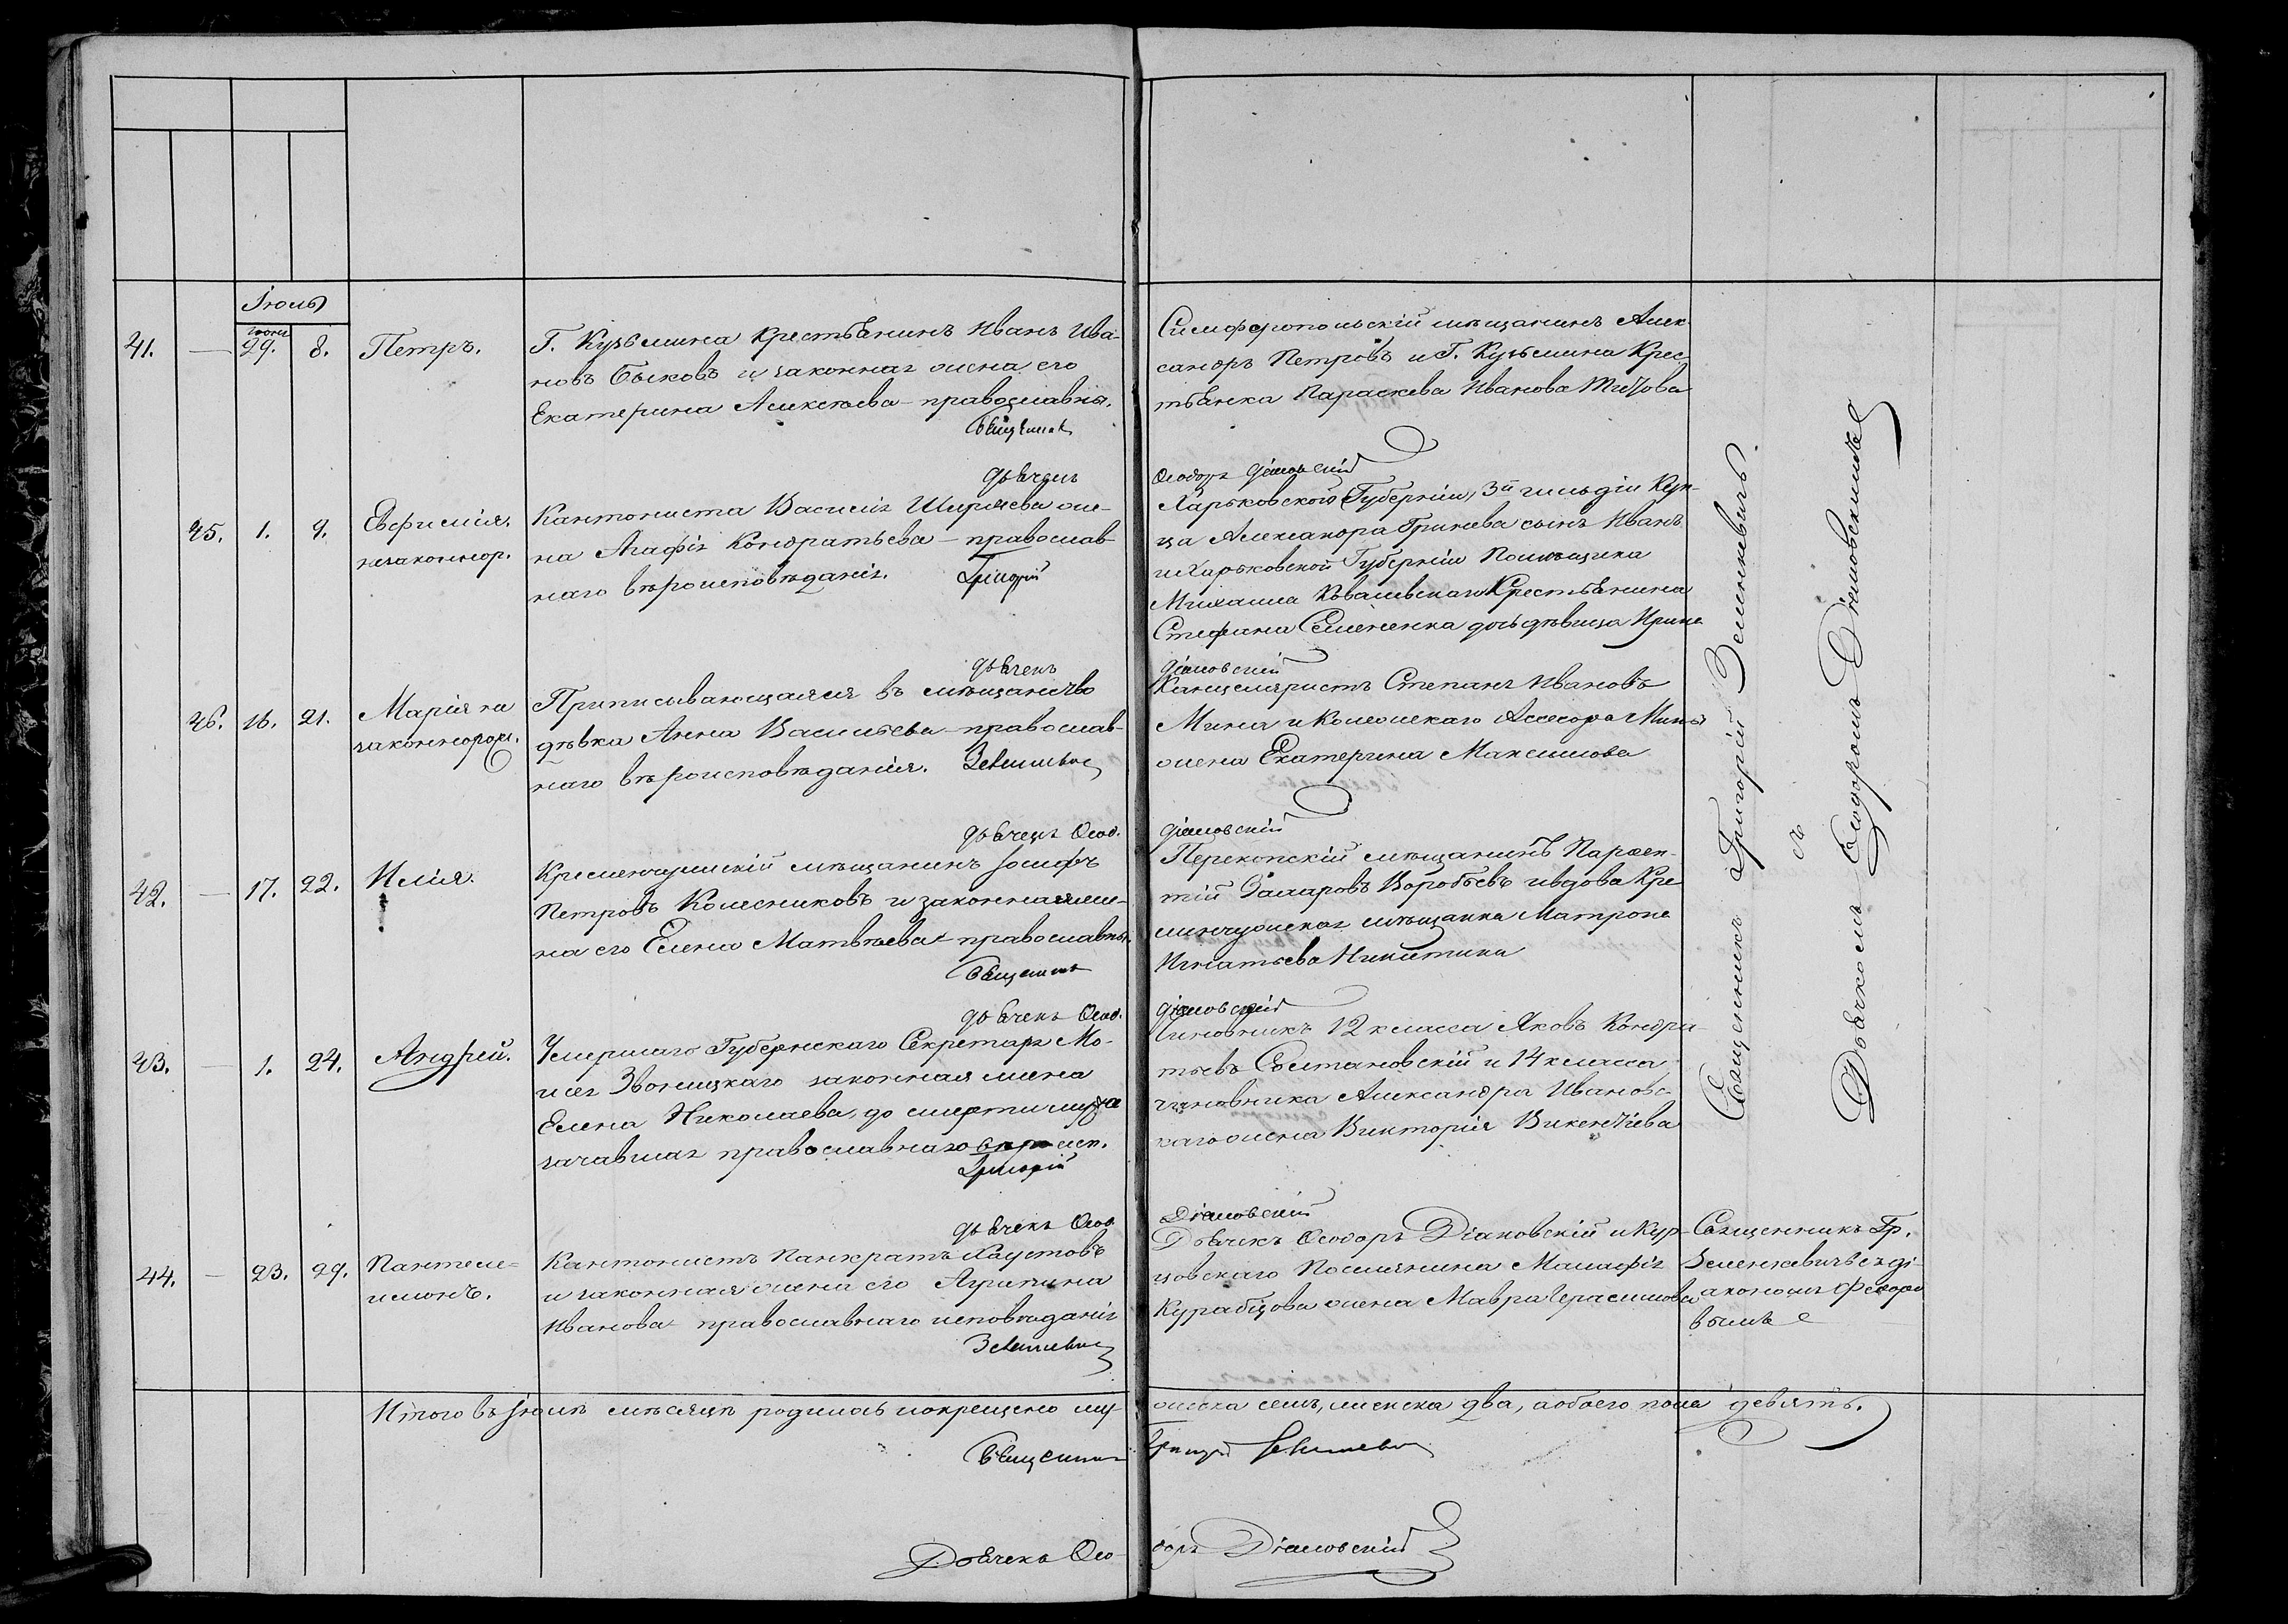 Іюль
41.
—
Іюня
29.
8.
Петръ.
Г. Кузьмина Крестьянинъ Иванъ Ива-
новъ Быковъ и законная жена его
Екатерина Алексѣева – православны.
Священникъ
Симферопольскій мѣщанинъ Алек-
сандръ Петровъ и Г. Кузьмина Крес-
тьянка Параскева Иванова
45.
1.
9.
Евфимія.
незаконнор.
Дьячекъ
Кантониста Василія Ширяева же-
на Агафія Кондратьева – православ-
наго вѣроисповѣданія.
Григорій
Ѳеодоръ Діяковскій
Харьковской Губерніи, 3й гильдіи Куп-
ца Александра Гринева сынъ Иванъ
и Харьковской Губерніи Помѣщика
Михаила Ковалевскаго Крестьянина
Стефана Семененка дочь дѣвица Ирина
46.
16.
21.
Марія не
законнорож.
Дьячекъ
Приписывающаяся въ мѣщанство
дѣвка Анна Васильева – православ-
наго вѣроисповѣданія.
Зеленкевичъ
Діяковскій
Канцеляристъ Степанъ Ивановъ
Мина и Колежскаго Ассесора Мины
жена Екатерина Максимова
42.
—
17.
22.
Илія.
Дьячекъ Ѳеод.
Кременчугскій мѣщанинъ Іосифъ
Петровъ Колесниковъ и законная же-
на его Елена Матвѣева – православны.
Священникъ
Діяковскій
Перекопскій мѣщанинъ Парѳен-
тій Воробьевъ и вдова Кре-
менчугская мѣщанка Матрона
Игнатьева Никитина
43.
—
1.
24.
Андрей.
Дьячекъ Ѳеод.
Умершаго Губернскаго Секретаря Мо-
исея Звоницкаго законная жена
Елена Николаева, до смерти мужа
зачавшая православнаго вѣроисп.
Григорій
Діяковскій
Чиновникъ 12 класса Яковъ Кондра-
тьевъ и 14 класса
чиновника Александра Ивановс-
каго жена Викторія Викентіева
44.
—
23.
29.
Пантеле-
имонъ.
Дьячекъ Ѳеод.
Кантонистъ Панкратъ Хаустовъ
и законная жена его Агрипина
Иванова – православнаго исповѣданія
Зеленкевичъ
Діяковскій
Дьячекъ Ѳеодоръ Діяковскій и Кур-
цовскаго Поселянина
жена Мавра Герасимова
Священникъ Гр.
Зеленкевичъ съ ді-
акономъ Федоро-
вымъ
Священникъ Григорій Зеленкевичъ
съ
Дьячкомъ Ѳеодоромъ Діяковскимъ
Итого въ Іюлѣ мѣсяцѣ родилось и окрещено му-
жеска семь, женска два, а обоего пола девять.
Священникъ Григорій Зеленкевичъ
Дьячекъ Ѳео-
доръ Діяковскій